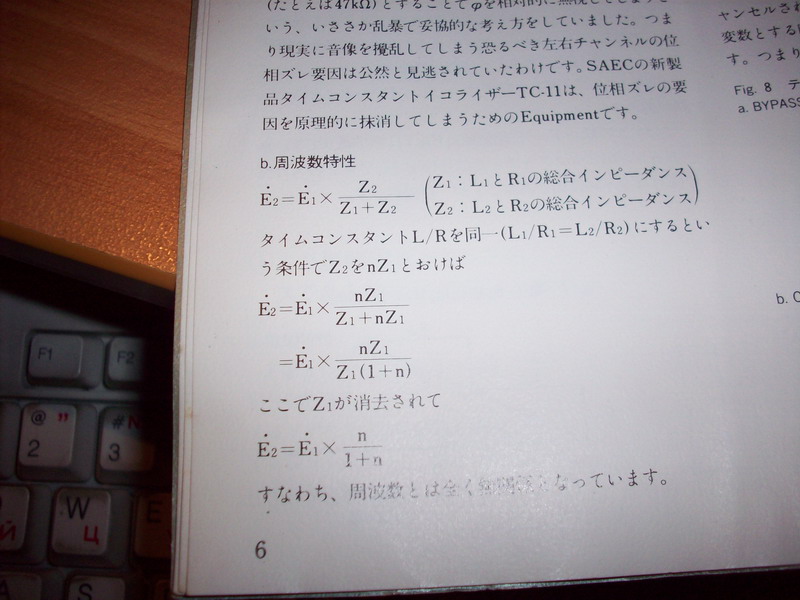 (たとえば47kΩ)とすることでφを相対的に無視してしまうと
いう、いささか乱暴で妥協的な考え方をしていました。つま
り現実に音像を攪乱してしまう恐るべき左右チャンネルの位
相ズレ要因は公然と見逃されていたわけです。SAECの新製
品タイムコンスタントイコライザーTC-11は、位相ズレの要
因を原理的に抹消してしまうためのEquipmentです。
b.周波数特性
Ė2=Ė1×Z2/(Z1+Z2) (Z1:L1とR1の総合インピーダンス
Z2:L2とR2の総合インピーダンス)
タイムコンスタントL/Rを同一(L1/R1=L2/R2)にするとい
う条件でZ2をnZ1とおけば
Ė2=Ė1×nZ1/(Z1+nZ1)
=Ė1×nZ1/(Z1(1+n))
ここでZ1が消去されて
Ė2=Ė1×n/(1+n)
すなわち、周波数とは全く無関係となっています。
6
ャンセルされ
変数とする
す。つまり
Fig. 8
a. BYPASS
b.
F1
F2
@ "
2
#
3
W
Ц
Й
E
A
S